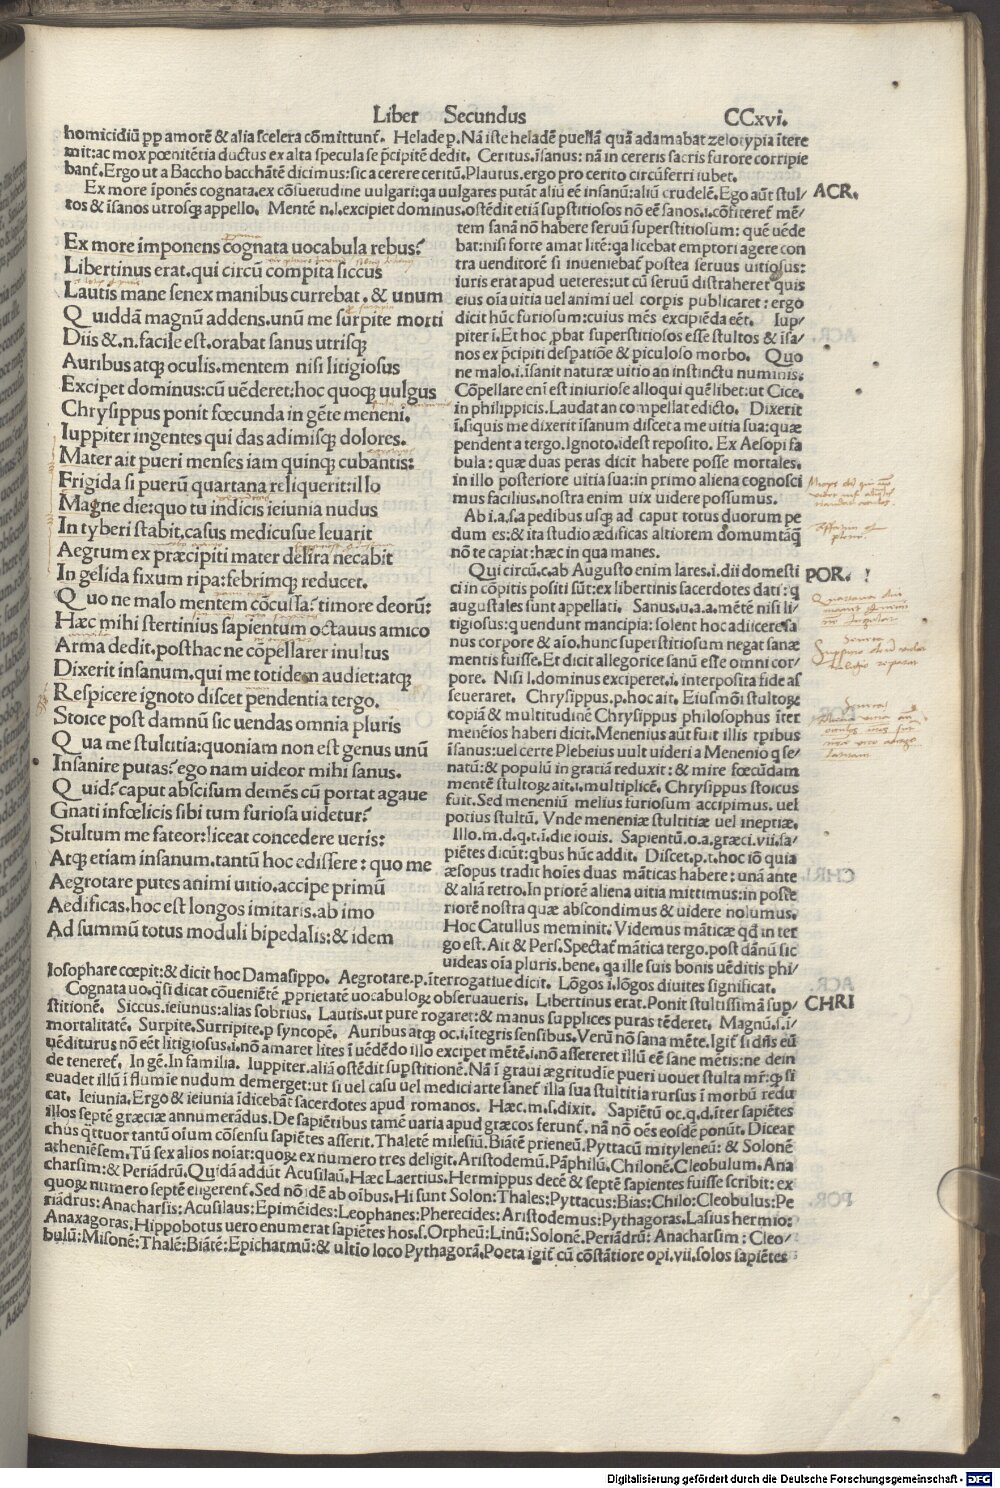 Liber Secundus CCxvi.
homicidiū pp amorē & alia scelera cōmittunt. Helade p. Nā iste heladē puellā quā adamabat zelotypia ītere
mit: ac mox pœnitētia ductus ex alta specula se p̄cipitē dedit. Ceritus. īsanus: nā in cereris sacris furore corripie
bant. Ergo ut a Baccho bacchātē dicimus: sic a cerere ceritū. Plautus. ergo pro cerito circūferri iubet.
Ex more īponēs cognata. ex cōsuetudine uulgari: qa uulgares putāt aliū eē insanū: aliū crudelē. Ego aūt stul⸗ ACR.
tos & īsanos utrosq; appello. Mentē n. l. excipiet dominus. ostēdit etiā supstitiosos nō eē sanos. i. cōfiteret mē⸗
tem sanā nō habere seruū superstitiosum: quē uēde
bat: nisi forte amat litē: qa licebat emptori agere con
tra uenditorē si inueniebat postea seruus uitiosus:
iuris erat apud ueteres: ut cū seruū distraheret quis
eius oīa uitia uel animi uel corpis publicaret: ergo
dicit hūc furiosum: cuius mēs excipiēda eēt. Iup⸗
piter i. Et hoc pbat superstitiosos esse stultos & īsa⸗
nos ex p̄cipiti despatiōe & piculoso morbo. Quo
ne malo. i. īsanit naturæ uitio an instinctu numinis.
Cōpellare eni est iniuriose alloqui quēlibet: ut Cice.
in philippicis. Laudat an compellat edicto. Dixerit
i. siquis me dixerit īsanum discet a me uitia sua: quæ
pendent a tergo. Ignoto. idest reposito. Ex Aesopi fa
bula: quæ duas peras dicit habere posse mortales.
in illo posteriore uitia sua: in primo aliena cognosci
mus facilius. nostra enim uix uidere possumus.
Ab i. a. s. a pedibus usq; ad caput totus duorum pe
dum es: & ita studio ædificas altiorem domum tāq
nō te capiat: hæc in qua manes.
Qui circū. c. ab Augusto enim lares. i. dii domesti POR.
ci in cōpitis positi sūt: ex libertinis sacerdotes dati: q
augustales sunt appellati. Sanus. u. a. a. mētē nisi li⸗
tigiosus: q uendunt mancipia: solent hoc adiicere sa
nus corpore & aīo. hunc superstitiosum negat sanæ
mentis fuisse. Et dicit allegorice sanū esse omni cor⸗
pore. Nisi l. dominus exciperet. i. interposita fide as
seueraret. Chrysippus. p. hoc ait. Eiusmōi stultoꝝ
copiā & multitudinē Chrysippus philosophus īter
menēios haberi dicit. Menenius aūt fuit illis tpibus
īsanus: uel certe Plebeius uult uideri a Menenio q se⸗
natū: & populū in gratiā reduxit: & mire fœcūdam
mentē stultoꝝ ait. i. multiplicē. Chrysippus stoicus
fuit. Sed meneniū melius furiosum accipimus. uel
potius stultū. Vnde meneniæ stultitiæ uel ineptiæ.
Illo. m. d. q. t. i. die iouis. Sapientū. o. a. græci. vii. sa⸗
piētes dicūt: qbus hūc addit. Discet. p. t. hoc iō quia
æsopus tradit hoīes duas māticas habere: unā ante
& aliā retro. In priorē aliena uitia mittimus: in poste
riorē nostra quæ abscondimus & uidere nolumus.
Hoc Catullus meminit. Videmus māticæ qd in ter
go est. Ait & Pers. Spectat mātica tergo. post dānū sic
uideas oīa pluris. bene. qa ille suis bonis uēditis phi⸗
Ex more imponens cognata uocabula rebus?
Libertinus erat. qui circū compita siccus
Lautis mane senex manibus currebat. & unum
Quiddā magnū addens. unū me surpite morti
Diis & .n. facile est. orabat sanus utrisq;
Auribus atq; oculis. mentem nisi litigiosus
Excipet dominus: cū uēderet: hoc quoq; uulgus
Chrysippus ponit fœcunda in gēte meneni.
Iuppiter ingentes qui das adimisq; dolores.
Mater ait pueri menses iam quinq; cubantis:
Frigida si puerū quartana reliquerit: illo
Magne die: quo tu indicis ieiunia nudus
In tyberi stabit. casus medicusue leuarit
Aegrum ex præcipiti mater delira necabit
In gelida fixum ripa: febrimq; reducet.
Quo ne malo mentem cōcussa? timore deorū:
Hæc mihi stertinius sapientum octauus amico
Arma dedit. posthac ne cōpellarer inultus
Dixerit insanum. qui me totidem audiet: atq;
Respicere ignoto discet pendentia tergo.
Stoice post damnū sic uendas omnia pluris
Qua me stultitia: quoniam non est genus unū
Insanire putas? ego nam uideor mihi sanus.
Quid? caput abscisum demēs cū portat agaue
Gnati infœlicis sibi tum furiosa uidetur?
Stultum me fateor: liceat concedere ueris:
Atq; etiam insanum. tantū hoc edissere: quo me
Aegrotare putes animi uitio. accipe primū
Aedificas. hoc est longos imitaris. ab imo
Ad summū totus moduli bipedalis: & idem
losophare cœpit: & dicit hoc Damasippo. Aegrotare. p. īterrogatiue dicit. Lōgos i. lōgos diuites significat.
Cognata uo. q̄si dicat cōueniētē pprietatē uocabuloꝝ obseruaueris. Libertinus erat. Ponit stultissimā sup⸗ CHRI
stitionē. Siccus. ieiunus: alias sobrius. Lautis. ut pure rogaret: & manus supplices puras tēderet. Magnū. s. ī⸗
mortalitatē. Surpite. Surripite. p syncopē. Auribus atq; oc. i. ītegris sensibus. Verū nō sana mēte. Igit si dn̄s eū
uēditurus nō eēt litigiosus. i. nō amaret lites ī uēdēdo illo excipet mētē. i. nō assereret illū eē sane mētis: ne dein
de teneret. In gē. In familia. Iuppiter. aliā ostēdit supstitionē. Nā ī graui ægritudīe pueri uouet stulta mr̄: q si
euadet illū ī flumīe nudum demerget: ut si uel casu uel medici arte sanet illa sua stultitia rursus ī morbū redu
cat. Ieiunia. Ergo & ieiunia īdicebāt sacerdotes apud romanos. Hæc. m. s. dixit. Sapiētū oc. q. d. īter sapiētes
illos septē græciæ annumerādus. De sapiētibus tamē uaria apud græcos ferunt. nā nō oēs eosdē ponūt. Diceat
chus q̄ttuor tantū oīum cōsensu sapiētes asserit. Thaletē milesiū. Biātē prieneū. Pyttacū mityleneū: & Solonē
atheniēsem. Tū sex alios noīat: quoꝝ ex numero tres deligit. Aristodemū. Pāphilū. Chilonē. Cleobulum. Ana
charsim: & Periādrū. Quidā addūt Acusilaū. Hæc Laertius. Hermippus decē & septē sapientes fuisse scribit: ex
quoꝝ numero septē eligerent. Sed nō idē ab oībus. Hi sunt Solon: Thales: Pyttacus: Bias: Chilo: Cleobulus: Pe
riādrus: Anacharsis: Acusilaus: Epimēides: Leophanes: Pherecides: Aristodemus: Pythagoras. Lasius hermio:
Anaxagoras. Hippobotus uero enumerat sapiētes hos. s. Orpheū: Linū: Solonē. Periādrū: Anacharsim: Cleo⸗
bulū: Misonē: Thalē: Biātē: Epicharmū: & ultīo loco Pythagorā. Poeta igit cū cōstātiore opi. vii. solos sapiētes
Digitalisierung gefördert durch die Deutsche Forschungsgemeinschaft - DFG